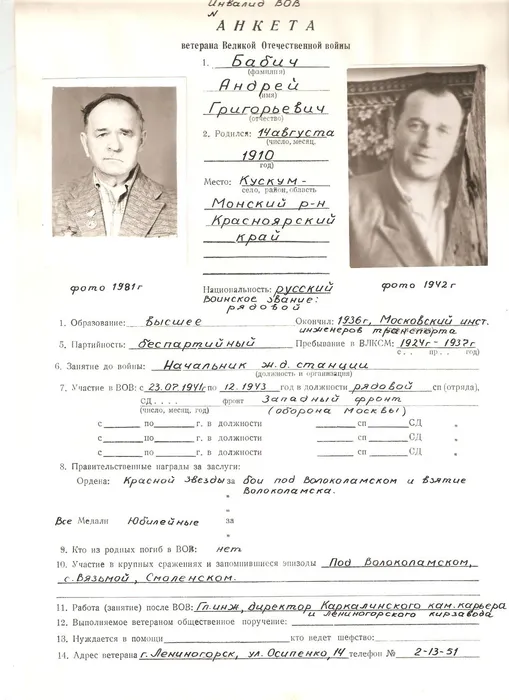 Инвалид ВОВ
№
АНКЕТА
ветерана Великой Отечественной войны
1. Бабич
(фамилия)
Андрей
(имя)
Григорьевич
(отчество)
2. Родился: 14 августа
(число, месяц,
1910
год)
Место: Кускум-
село, район, область
Монский р-н
Красноярский
край
Национальность: русский
воинское звание:
рядовой
фото 1981г
фото 1942г
1. Образование: высшее Окончил: 1936г, Московский инст.
инженеров транспорта
5. Партийность: беспартийный Пребывание в ВЛКСМ: 1924г - 1937г
с . . пр . . г.
6. Занятие до войны: Начальник ж.д. станции
(должность и организация)
7. Участие в ВОВ: с 23.07.1941г по 12.1943 год в должности рядовой сп (отряда),
СД . . . . фронт Западный фронт
(число, месяц, год) (оборона Москвы)
с по г. в должности сп СД "
с по г. в должности сп СД "
с по г. в должности сп СД "
8. Правительственные награды за заслуги:
Ордена: Красной Звезды за бои под Волоколамском и взятие
" Волоколамска.
"
Все Медали Юбилейные за
"
9. Кто из родных погиб в ВОВ: нет
10. Участие в крупных сражениях и запомнившиеся эпизоды Под Волоколамском,
с. Вязьмой, Смоленском.
11. Работа (занятие) после ВОВ: Гл.инж, директор Каркалинского кам. карьера
и Лениногорского кирзавода
12. Выполняемое ветераном общественное поручение:
13. Нуждается в помощи кто ведет шефство:
14. Адрес ветерана г. Лениногорск, ул. Осипенко, 14 телефон № 2-13-51